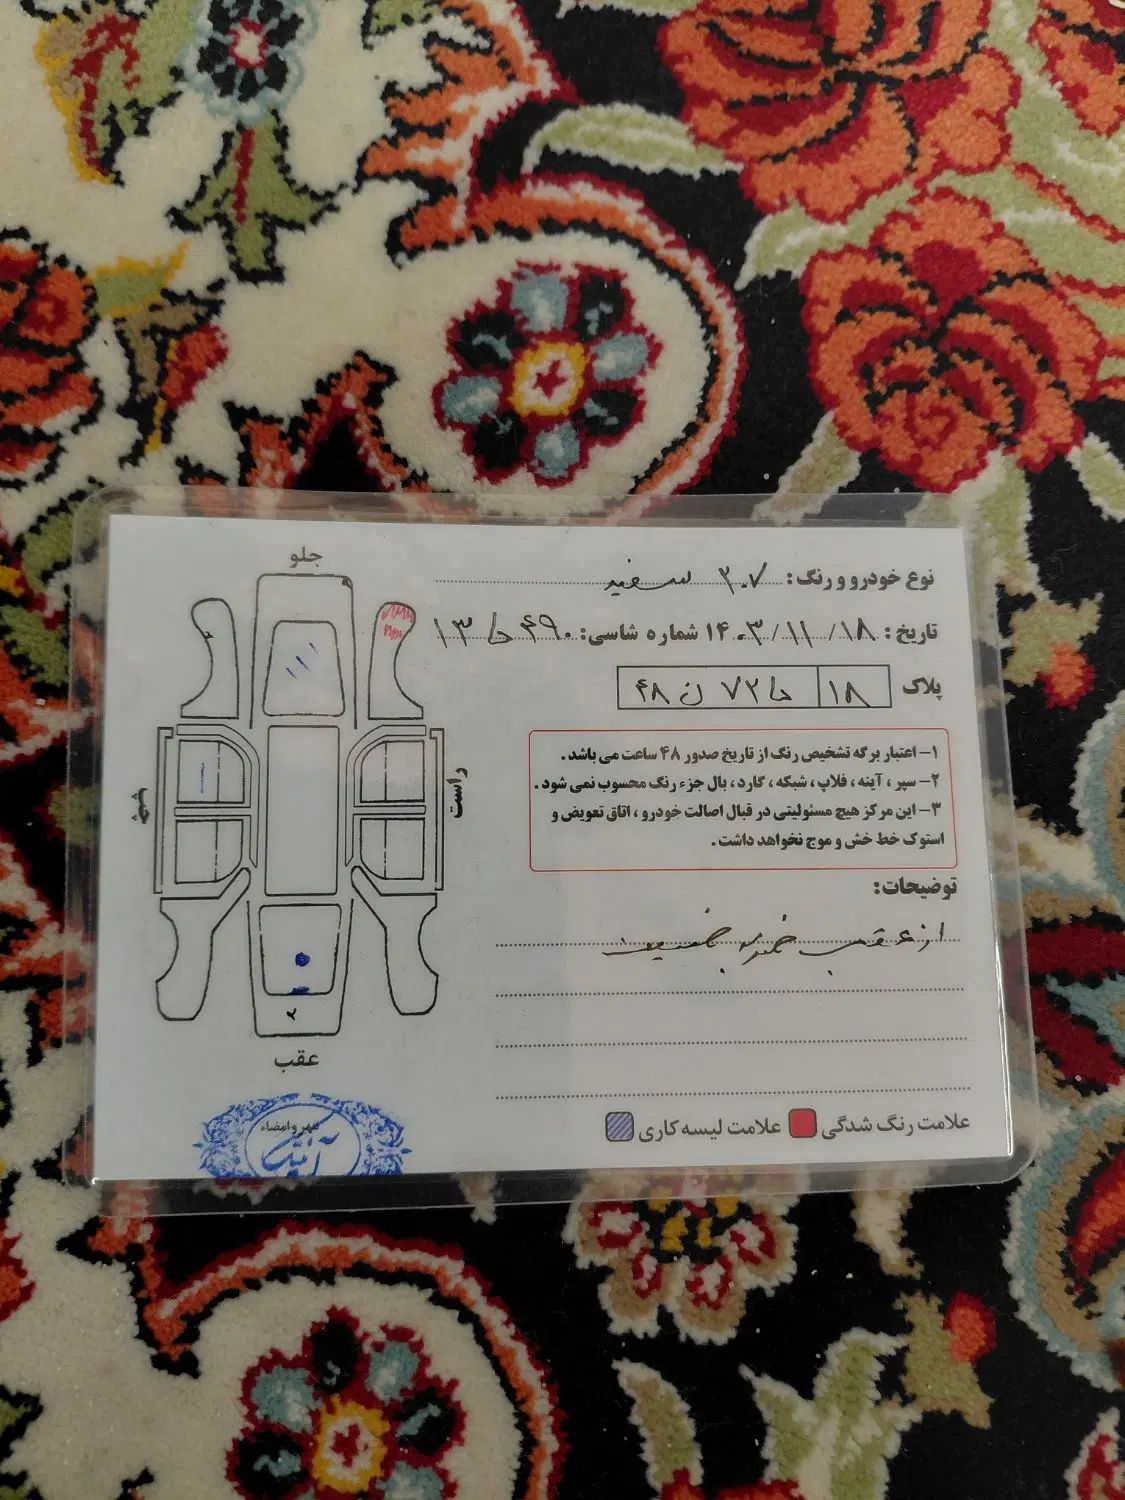 جلو
نوع خودرو و رنگ: ۲۰۷ سفید
تاریخ: ۱۴۰۳/۱۱/۱۸ شماره شاسی:
پلاک ۱۸ ۷۲ ن ۴۸
۱- اعتبار برگه تشخیص رنگ از تاریخ صدور ۴۸ ساعت می باشد.
۲- سپر، آینه، فلاپ، شبکه، گارد، بال جزء رنگ محسوب نمی شود.
۳- این مرکز هیچ مسئولیتی در قبال اصالت خودرو، اتاق تعویض و
استوک خط خش و موج نخواهد داشت.
چپ
راست
توضیحات:
از عقب ضربه خفیف
عقب
علامت رنگ شدگی علامت لیسه کاری
مهر و امضاء